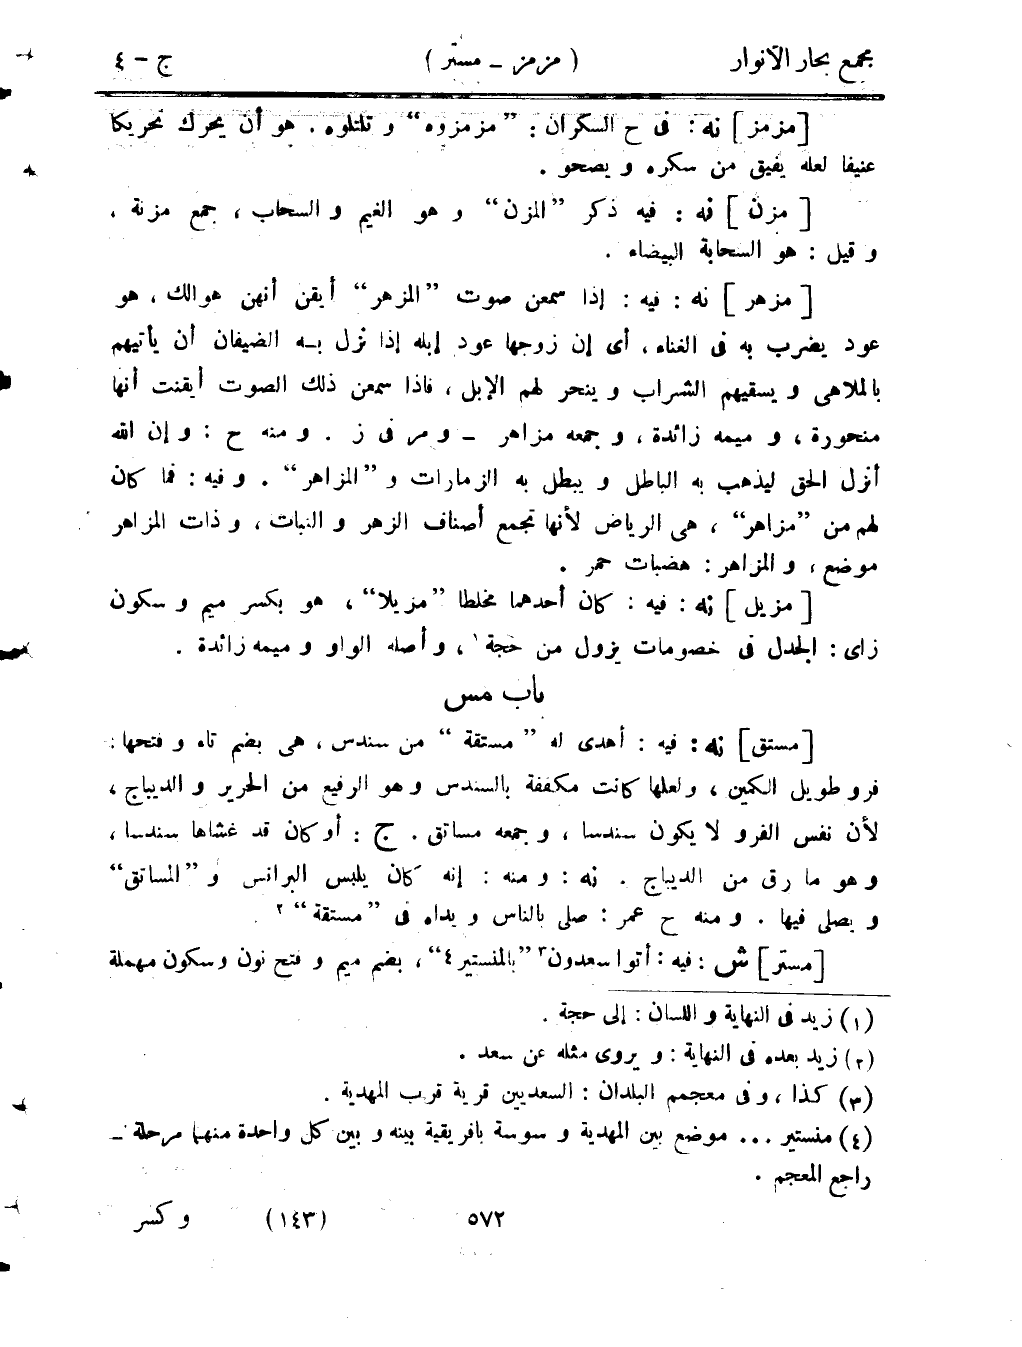 مجمع بحار الآنوار ( مزمز ـ مستر ) ج - ٤
[مزمز] نه: فى ح السكران: ”مزمزوه“ و تلتلوه. هو أن يحرك تحريكا
عنيفا لعله يفيق من سكره و يصحو.
[مزن] نه: فيه ذكر ”المزن“ و هو الغيم و السحاب، جمع مزنة.
و قيل: هو السحابة البيضاء.
[مزهر] نه: فيه: إذا سمعن صوت ”المزهر“ أيقن أنهن هوالك، هو
عود يضرب به فى الغناء، أى إن زوجها عود إبله إذا نزل بـه الضيفان أن يأتيهم
بالملاهى و يسقيهم الشراب و ينحر لهم الإبل، فاذا سمعن ذلك الصوت أيقنت أنها
منحورة، و ميمه زائدة، و جمعه مزاهر ـ و مر فى ز. و منه ح: و إن الله
أنزل الحق ليذهب به الباطل و يبطل به الزمارات و ”المزاهر“. و فيه: فما كان
لهم من ”مزاهر“، هى الرياض لأنها تجمع أصناف الزهر و النبات، و ذات المزاهر
موضع، و المزاهر: هضبات حمر.
[مزيل] نه: فيه: كان أحدهما مخلطا ”مزيلا“، هو بكسر ميم و سكون
زاى: الجدل فى خصومات يزول من حجة١، و أصله الواو و ميمه زائدة.
باب مس
[مستق] نه: فيه: أهدى له ”مستقة“ من سندس، هى بضم تاء و فتحها:
فرو طويل الكمين، و لعلها كانت مكففة بالسندس و هو الرفيع من الحرير و الديباج،
لأن نفس الفرو لا يكون سندسا، و جمعه مساتق. ج: أو كان قد غشاها سندسا،
و هو ما رق من الديباج. نه: و منه: إنه كان يلبس البرانس و ”المساتق“
و يصلى فيها. و منه ح عمر: صلى بالناس و يداه فى ”مستقة“٢.
[مستر] ش: فيه: أتوا سعدون٣ ”بالمنستير٤“، بضم ميم و فتح نون و سكون مهملة
(١) زيد فى النهاية و اللسان: إلى حجة.
(٢) زيد بعده فى النهاية: و يروى مثله عن سعد.
(٣) كذا، و فى معجمم البلدان: السعديين قرية قرب المهدية.
(٤) منستير ... موضع بين المهدية و سوسة بافريقية بينه و بين كل واحدة منهما مرحلة ـ
راجع المعجم.
٥٧٢ (١٤٣) و كسر